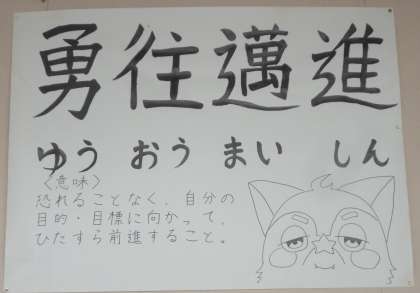 勇往邁進
ゆう おう まい しん
〈意味〉
恐れることなく、自分の
目的・目標に向かって、
ひたすら前進すること。